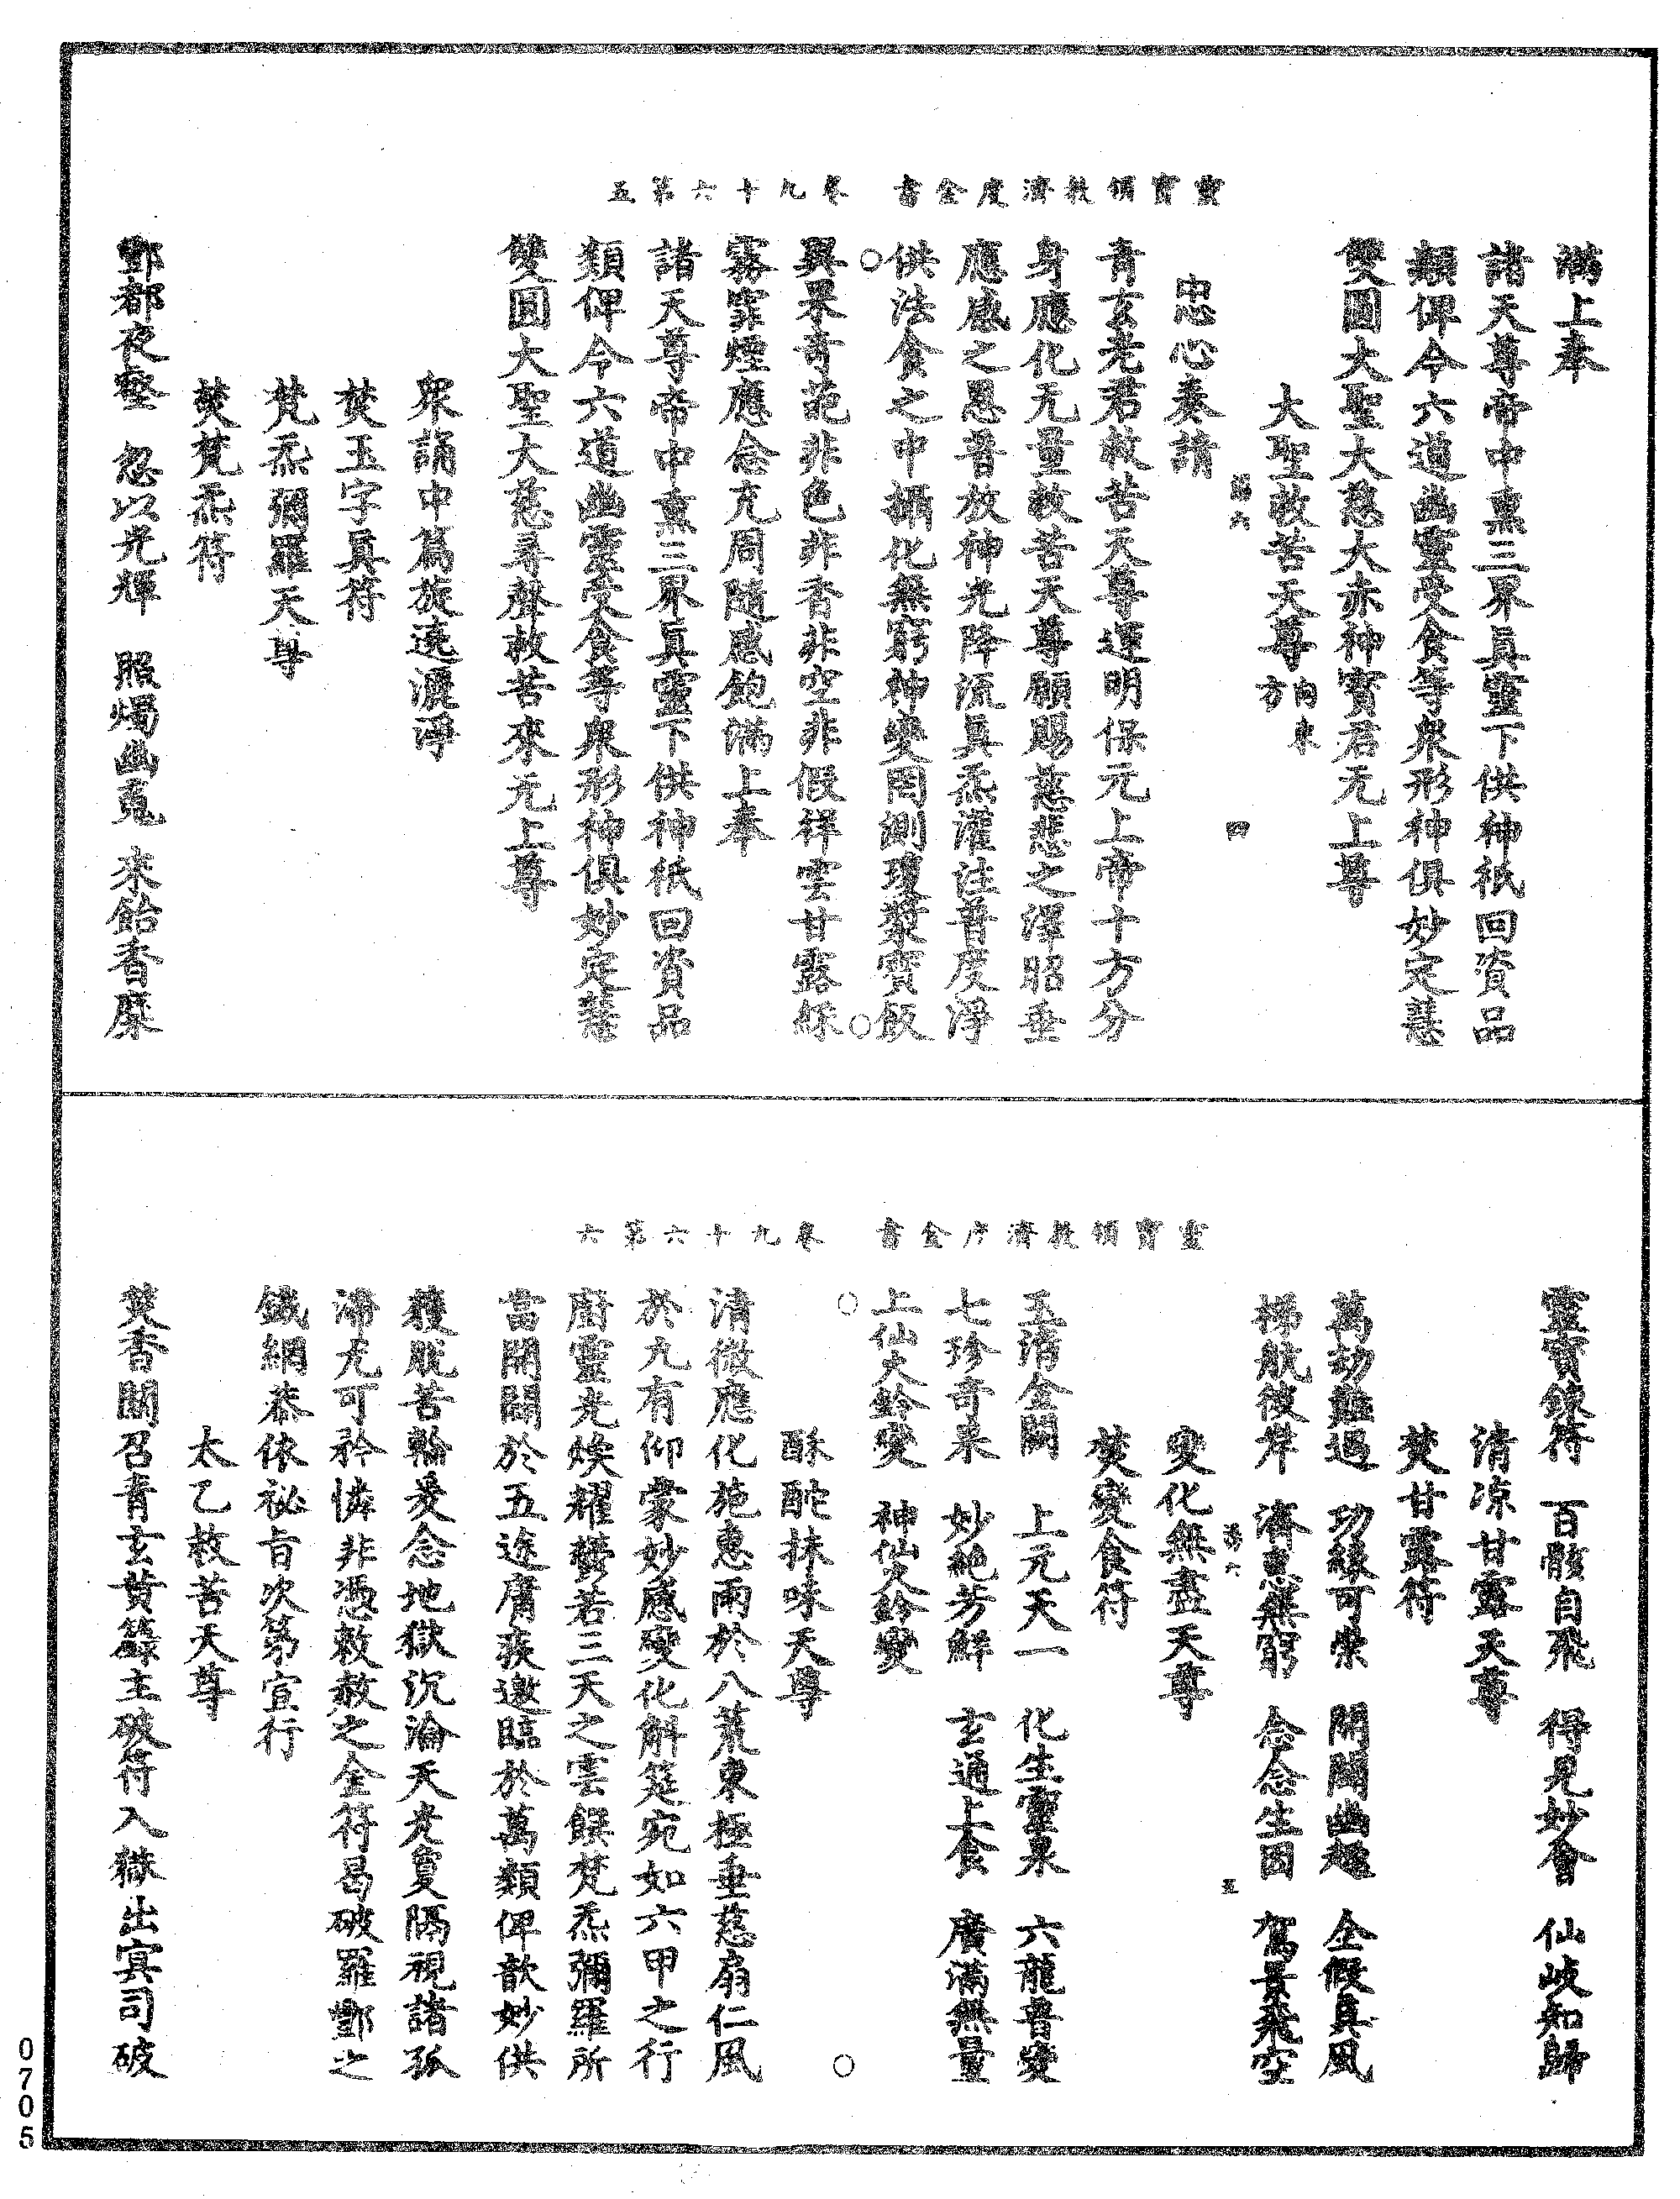 靈寶領教濟度金書　卷九十六第五
滿上奉
諸天尊帝中禀三界眞靈下供神祇回資品
類俾今六道幽靈受食等衆形神俱妙定慧
雙圓大聖大慈大赤神寳君无上尊
大聖救苦天尊向東方
四
忠心奏請
青玄老君救苦天尊運明保元上帝十方分
身應化无量救苦天尊願賜慈悲之澤昭垂
應感之恩普放神光降流眞炁灌注普度淨
供法食之中攝化無窮神變罔測瓊漿寳飯
異果奇葩非色非香非空非假祥雲甘露綵
霧霏煙應念充周隨感飽滿上奉
諸天尊帝中禀三界眞靈下供神祇回資品
類俾今六道幽靈受食等衆形神俱妙定慧
雙圓大聖大慈尋聲救苦來无上尊
衆誦中篇旋遶灑淨
焚玉字眞符
梵炁彌羅天尊
焚梵炁符
酆都夜壑　忽以光輝　照燭幽䰟　來飴香縻
靈寶領教濟度金書　卷九十六第六
靈寳錬符　百骸自飛　得見妙會　仙岐知歸
清凉甘露天尊
焚甘露符
萬劫難過　功縁可崇　開闡幽趣　全假眞風
梯航彼岸　濟惠無窮　念念生因　駕景飛空
五
變化無盡天尊
焚變食符
玉清金闕　上元天一　化生靈泉　六龍普變
七珍奇果　妙絶芳鮮　玄通上食　廣滿無量
上仙大鈴變　神仙文鈴變
酥酡抹味天尊
清微應化施惠雨於八荒東極垂慈扇仁風
於九有仰蒙妙感變化斛筵宛如六甲之行
厨靈光煥耀鬱若三天之雲饌梵炁彌羅所
當開闢於五途膺疾邀臨於萬類俾歆妙供
獲脱苦輪爰念地獄沉淪天光敻隔視諸孤
滯尤可矜憐非憑敕赦之全符曷破羅酆之
鐵網恭依祕旨次第宣行
太乙救苦天尊
焚香關召青玄黄籙主破符入獄出㝠司破
0705